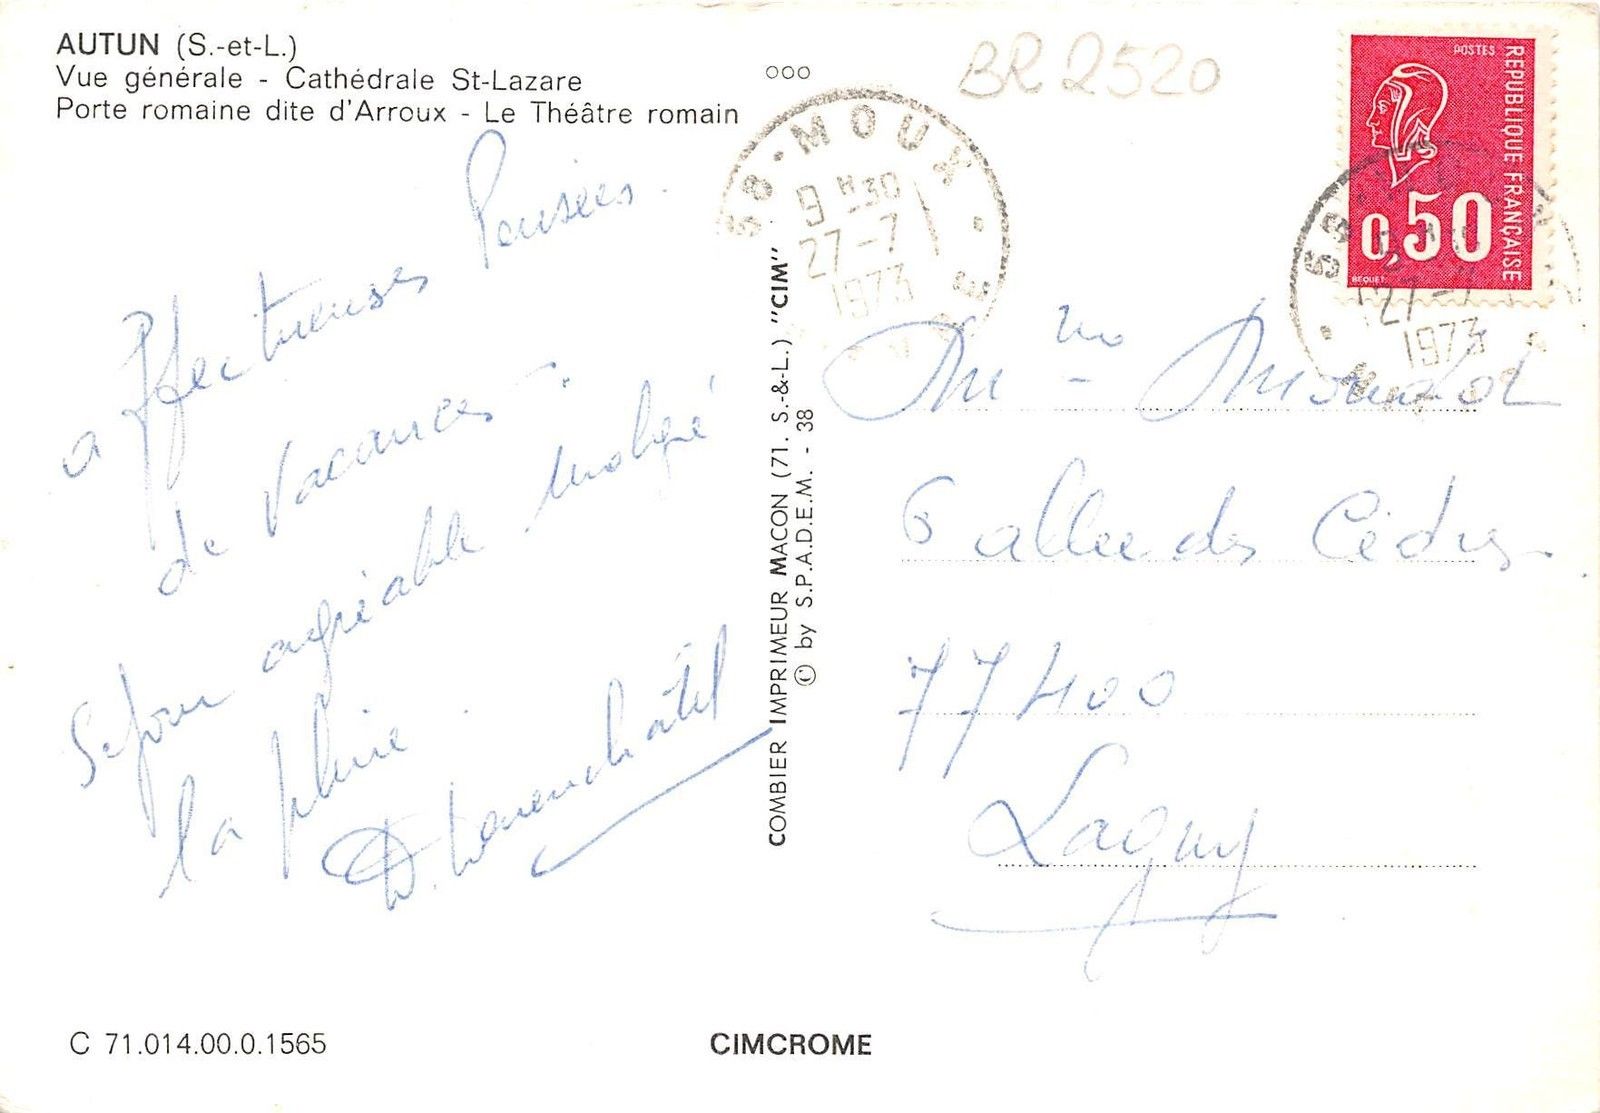 AUTUN (S.-et-L.)
Vue générale - Cathédrale St-Lazare
Porte romaine dite d'Arroux - Le Théâtre romain
ooo
BR 2520
58 · MOUX ·
9 H30
27-7
1973
POSTES
REPUBLIQUE FRANÇAISE
0,50
BEQUET
58
27-7
1973
Affectueuses Pensées.
de Vacances.
Séjour agréable malgré
la pluie.
D.
COMBIER IMPRIMEUR MACON (71. S.-&-L.) "CIM"
© by S.P.A.D.E.M. - 38
Mme
6 allée des Cèdres.
77400
Lagny
C 71.014.00.0.1565
CIMCROME